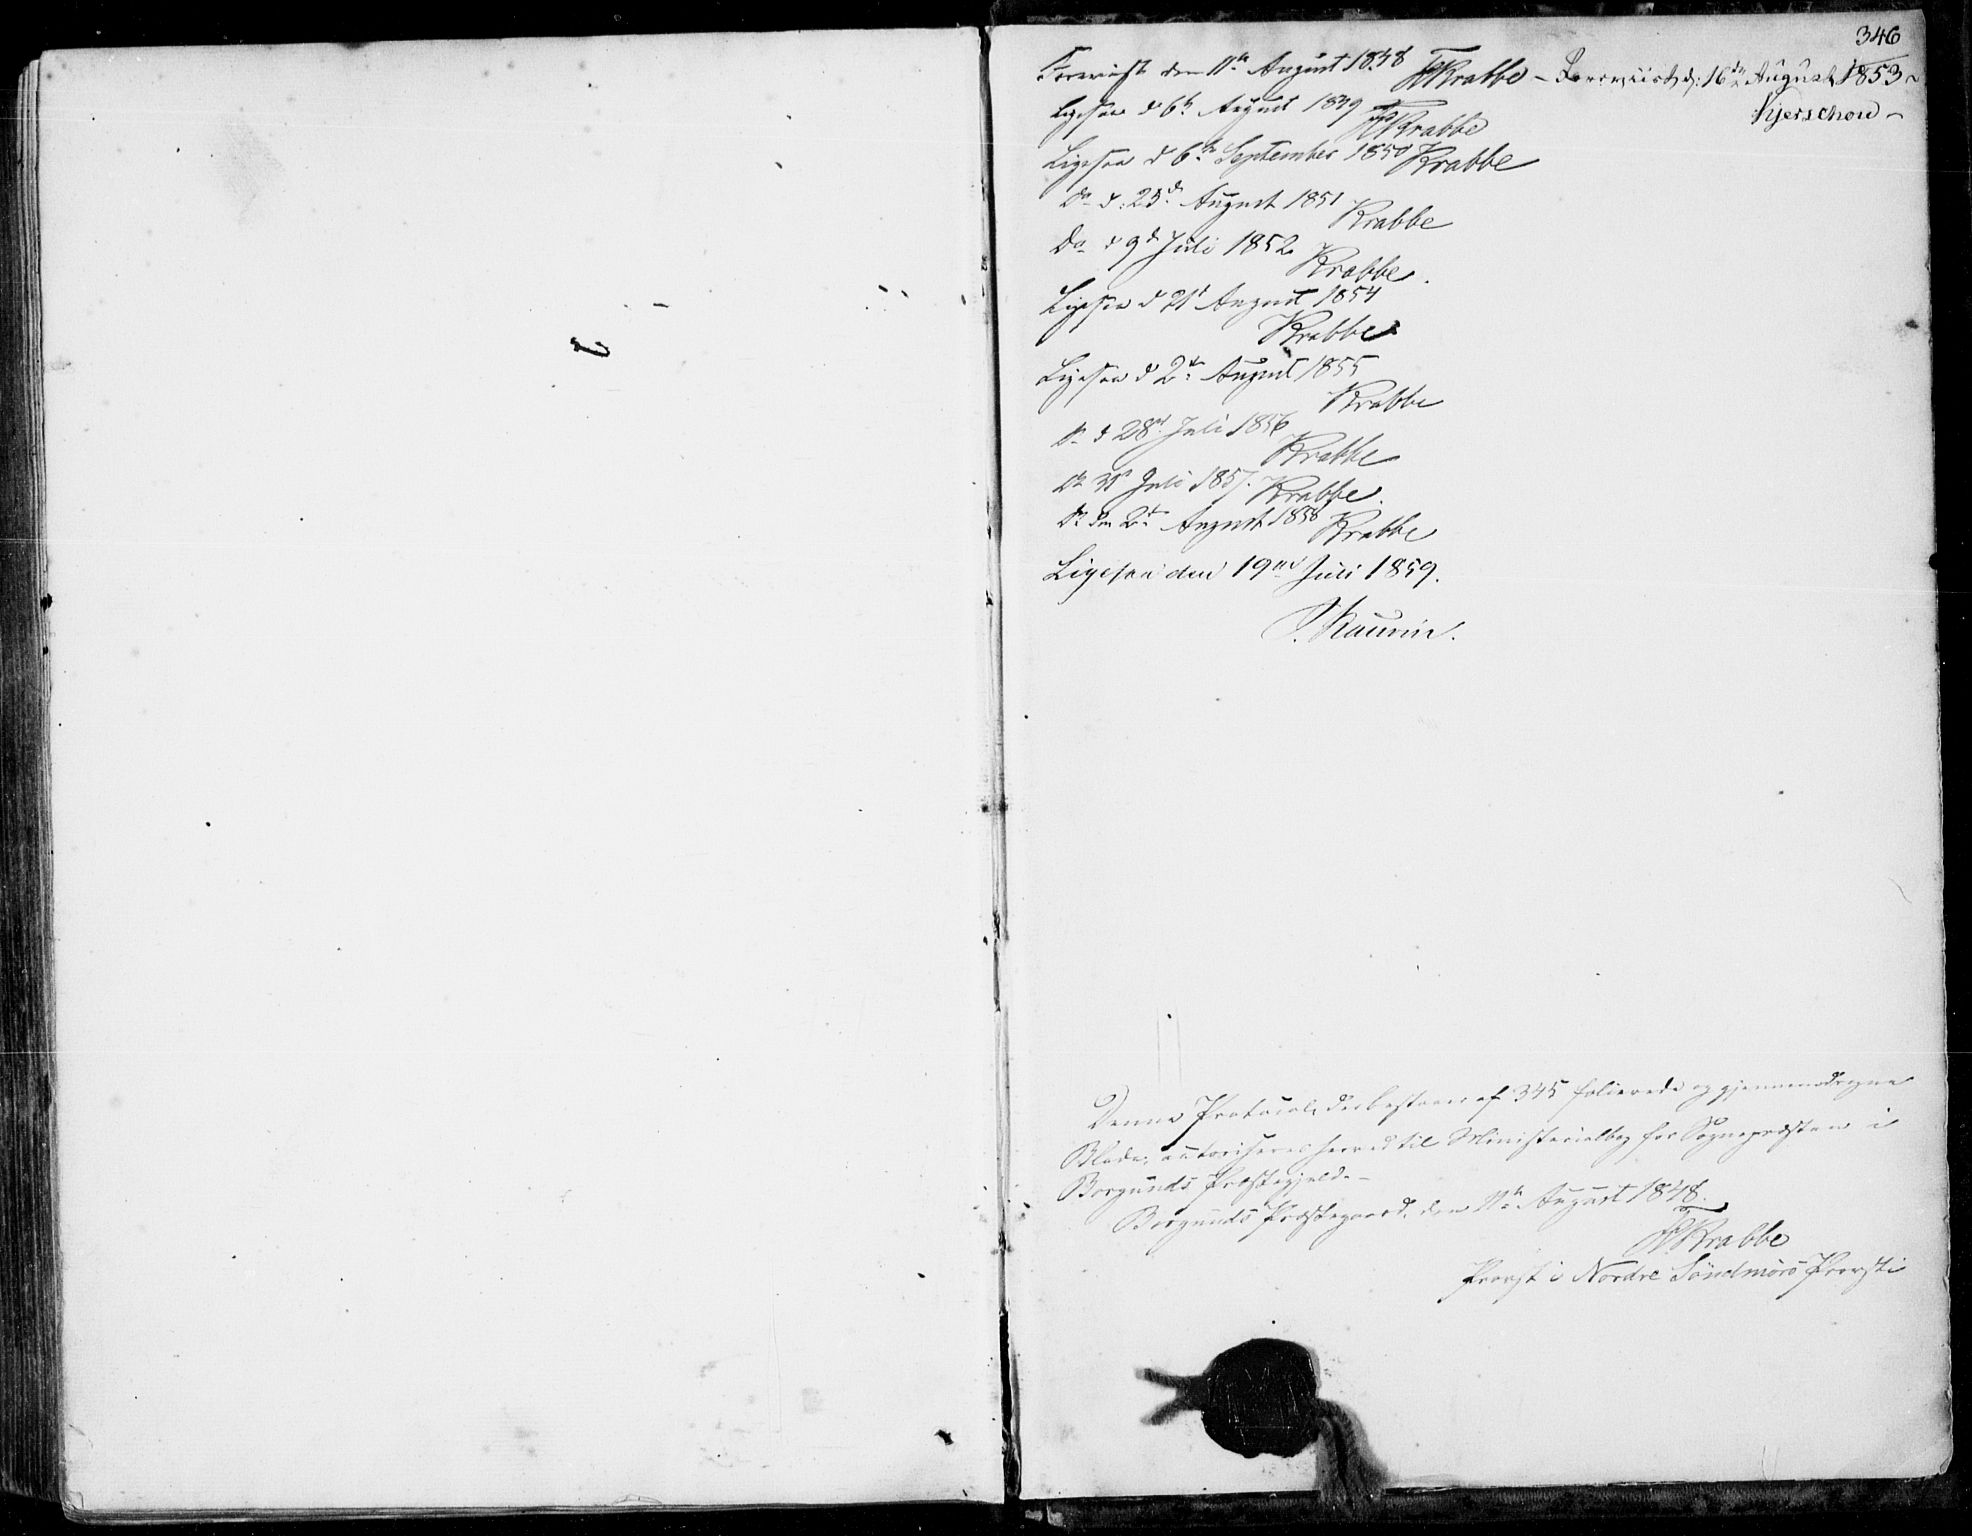 346
Foreviist den 11te August 1848 FKrabbe – Foreviist d: 16de August 1853 –
Kjerschow –
Ligesaa d 6te August 1849 FKrabbe
Ligesaa d 6te September 1850 Krabbe
Do d: 25de August 1851 Krabbe
Do d 9de Juli 1852 Krabbe.
Ligesaa d 21de August 1854
Krabbe
Ligesaa d 2den August 1855
Krabbe
Do d 28de Juli 1856
Krabbe
Do Juli 1857. Krabbe.
Do den 2den August 1858 Krabbe
Ligesaa den 19de Juli 1859.
Kaurin.
Denne Protocol, der bestaaer af 345 folierede og gjennemdragne
Blade, autoriseres herved til Ministerialbog for Sognepræsten i
Borgunds Præstegjeld. –
Borgunds Præstegaard, den 11te August 1848.
FKrabbe
Provst i Nordre Söndmörs Provsti